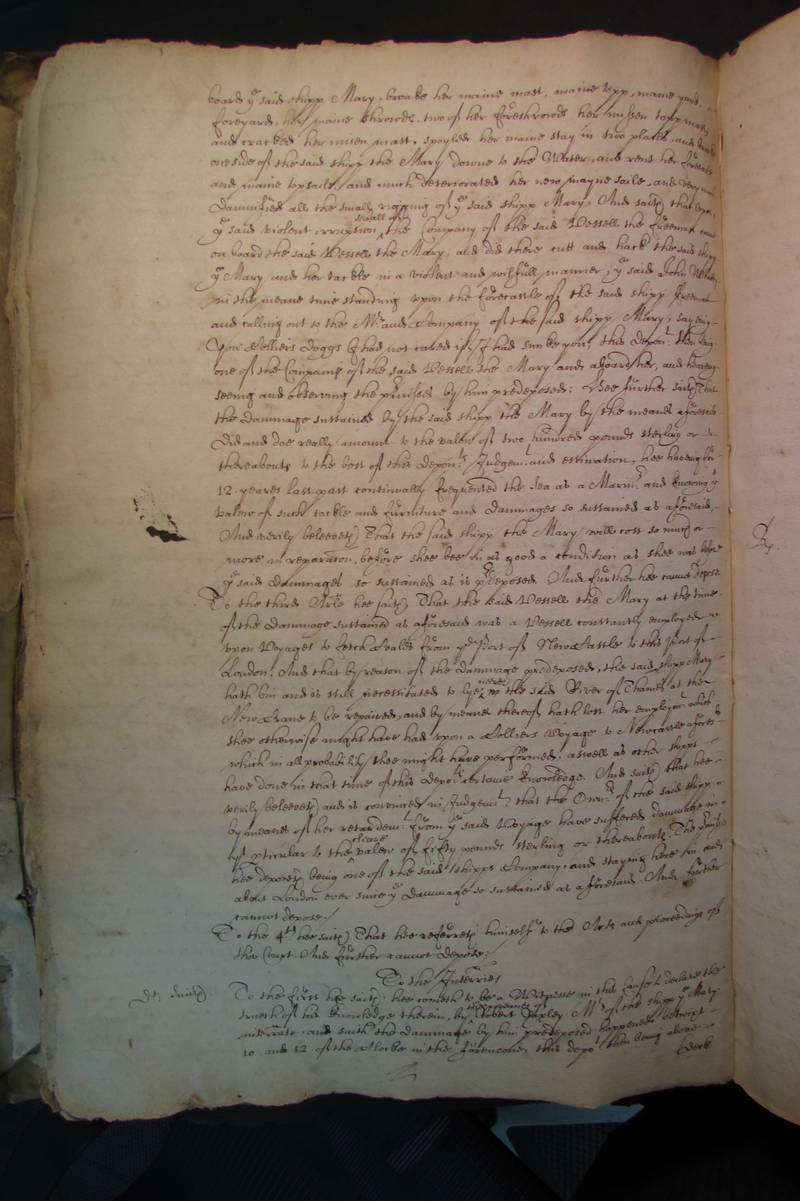 board ye said shipp Mary, broake her maine mast, maine topp, maine yard
foreyard, her maine shrowdes, two of her foreshrowds her missen topp mast
and cracked her missen mast, spoyled her maine stay in two places, and
one side of the said shipp the Mary downe to the Water, and rent her foresaile
and maine topsaile, and much deteriorated her new mayne saile, and very much
Damnifyed all the smalle rigging of ye said shipp Mary, And saith that upon
ye said violent irruption, severall of the Company of the said Vessell the Freeman came
on board the said Vessell the Mary, and did there cutt and hack the said shipp
ye Mary and her tackle in a violent and willfull manner, ye said John
in the meane time standing upon the forecastle of the said shipp Freeman
and calling out to the Mr and Company of the said shipp Mary, saying
You Colliers Doggs I had not cared if I had sunke you, this Depont then being
one of the Company of the said Vessell the Mary and aboard her, and hearing
seeing and observing the premisses by him predeposed: Hee further saith That
the Dammage sustained by the said shipp the Mary by the meanes aforesaid
Did and doe really amount to the valew of two hundred pounds sterling or
thereabouts to the best of this Deponts Judgemt and estimation, hee having for
12 yeares last past continually frequented the Sea as a Marinr and knowing ye
valew of such tackle and furniture and Dammages so sustained as aforesaid,
And verily beleeveth That the said shipp the Mary will cost so much or
more in reparacon, before shee bee in as good a condition as shee was before
ye said Dammages so sustained as is predeposed And further hee cannot depose
To the third Arle hee saith That the said Vessell the Mary at the time
of the Dammage sustained as aforesaid was a Vessell constantly employed
upon Voyages to fetch Coales from ye Port of NewCastle to this Port of
London, And that by reason of the Dammage predeposed, the said shipp Mary
hath bin and is still necessitated to lye neere the said River of Thames at the
New Crane to be repaired, and by meanes thereof hath lost her employmt which
shee otherwise might have had upon a Colliers Voyage to Newcastle aforesd
which in all probability shee might have performed, aswell as other shipps
have done in that time of this Deponts certaine knowledge. And saith that hee
verily beleeveth and is convinced in Judgemt that the Ownrs of the said shipp
by meanes of her retardemt from ye said Voyage have suffered dammage in
yt pticular to the cleare valew of fifty pounds sterling or thereabouts, The premisses
hee deposeth being one of the said shipps Company, and staying here in and
about London ever since ye Dammage so sustained as aforesaid. And further
cannot depose.
To the 4th hee saith That hee referreth himselfe to the Acts and proceedings of
this Court And further cannot depose.
To the Interries
To the first hee saith hee cometh to be a Witnesse in this Cause to declare the
trueth of his knowledge therein, by Robert Mr of the shipp ye Mary
interrate, and saith the Dammage by him predeposed happened betwixt
10 and 12 of the Clocke in the forenoone, this dept then being above
Deck